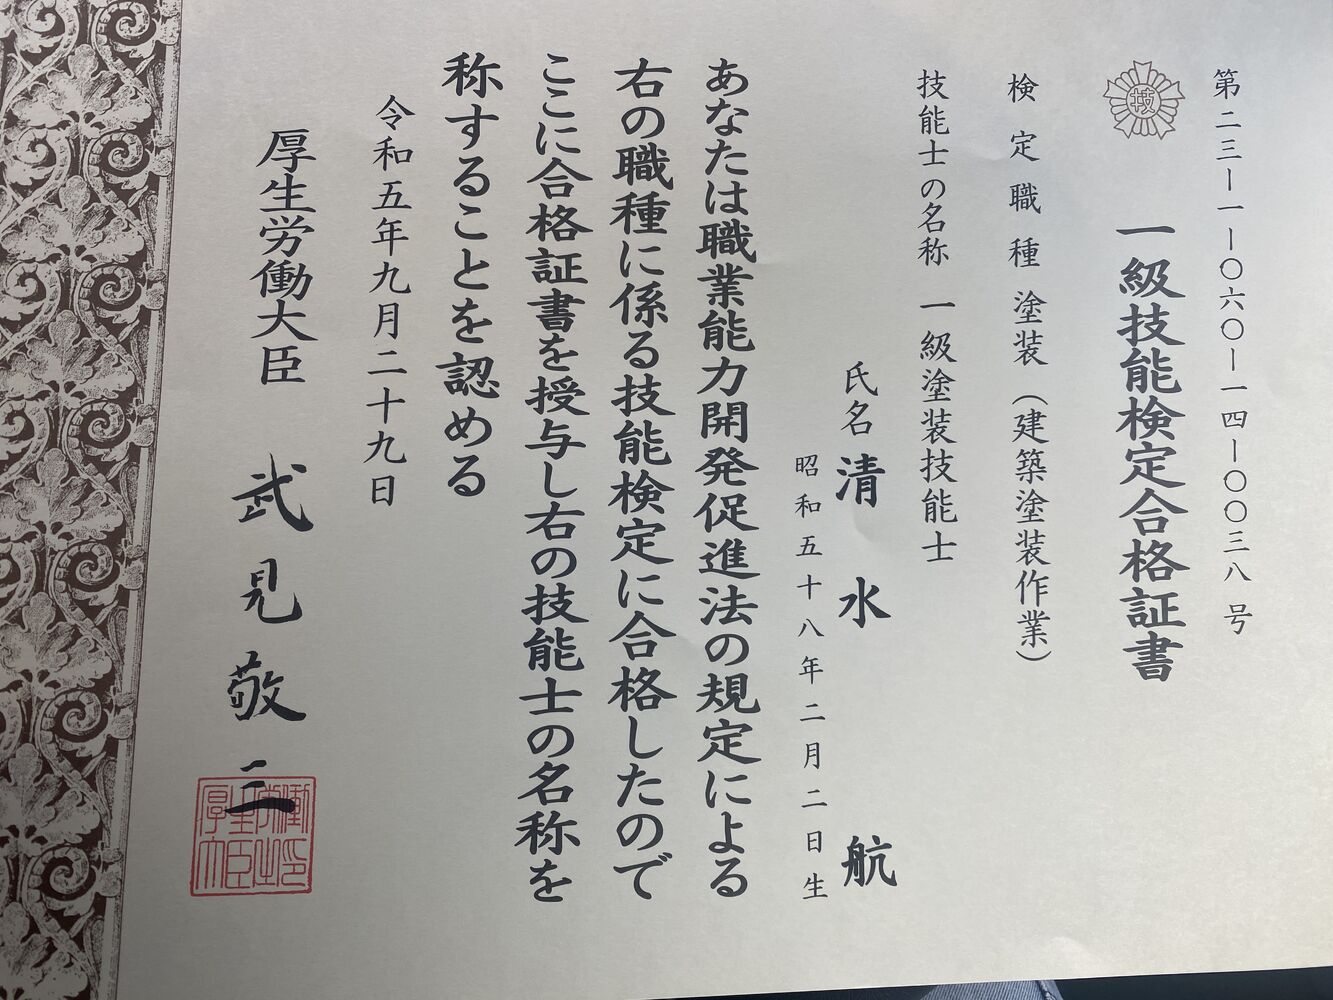 第二三ー一ー〇六〇ー一四ー〇〇三八号
技
一級技能検定合格証書
検定職種 塗装（建築塗装作業）
技能士の名称 一級塗装技能士
氏名 清水 航
昭和五十八年二月二日生
あなたは職業能力開発促進法の規定による
右の職種に係る技能検定に合格したので
ここに合格証書を授与し右の技能士の名称を
称することを認める
令和五年九月二十九日
厚生労働大臣 武見敬三
厚生労働大臣之印